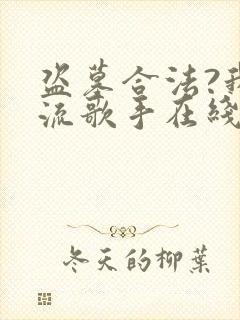 盗墓合法?我
流歌手在綫
冬天的柳葉